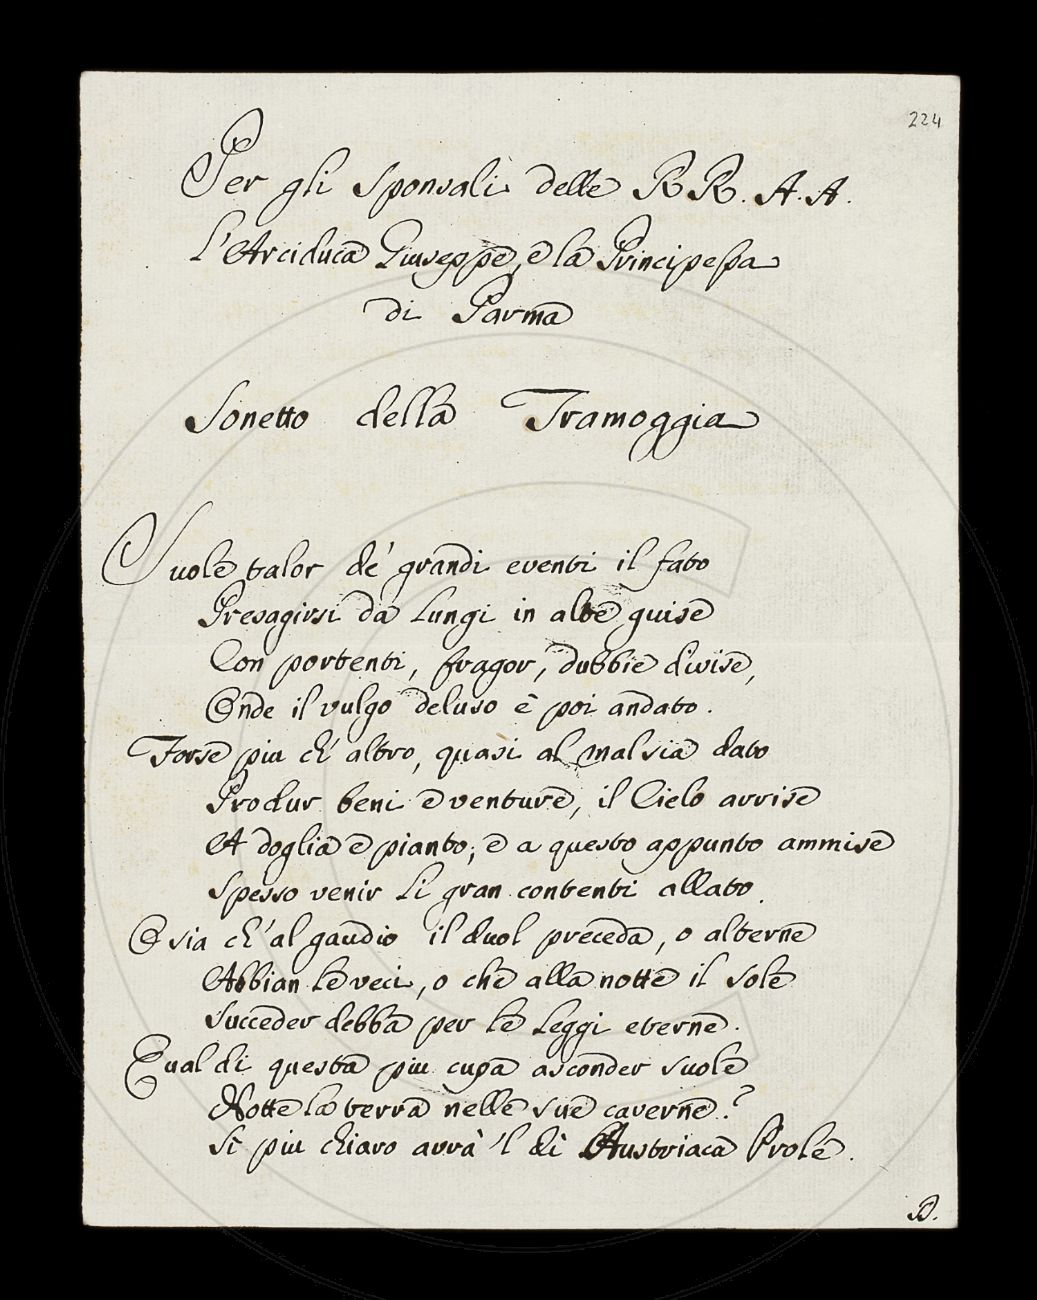 224
Per gli Sponsali delle R R. A. A.
L'Arciduca Giuseppe, e la Principessa
di Parma
Sonetto della Tramoggia
Suole talor de' grandi eventi il fato
Presagirsi da lungi in alte guise
Con portenti, fragor, dubbie divise,
Onde il vulgo deluso è poi andato.
Forse piu ch' altro, quasi al mal sia dato
Produr beni e venture, il Cielo arrise
A doglia e pianto; e a questo appunto ammise
Spesso venir li gran contenti allato.
O sia ch' al gaudio il duol preceda, o alterne
Abbian le veci, o che alla notte il sole
Succeder debba per le Leggi eterne.
Qual di questa piu cupa asconder suole
Notte la terra nelle sue caverne?
Sì piu chiaro avrà 'l dì Austriaca Prole.
D.